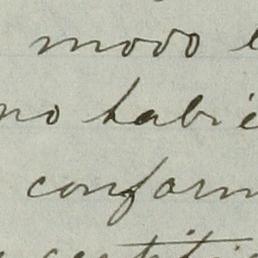 modo
no habié
conform